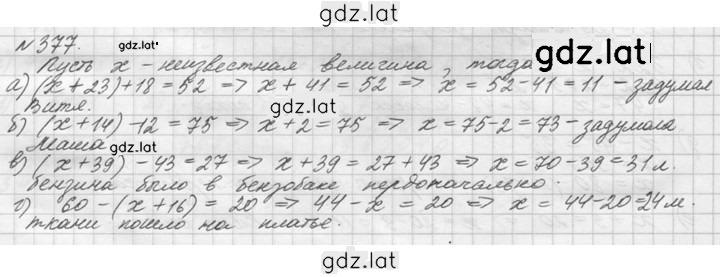 gdz.lat
№377.
gdz.lat
Пусть x - неизвестная величина, тогда
gdz.lat
а) (x + 23) + 18 = 52 => x + 41 = 52 => x = 52 - 41 = 11 - задумал
Витя.
gdz.lat
б) (x + 14) - 12 = 75 => x + 2 = 75 => x = 75 - 2 = 73 - задумала
Маша
gdz.lat
в) (x + 39) - 43 = 27 => x + 39 = 27 + 43 => x = 70 - 39 = 31 л.
бензина было в бензобаке первоначально.
г) 60 - (x + 16) = 20 => 44 - x = 20 => x = 44 - 20 = 24 м.
ткани пошло на платье.
gdz.lat
gdz.lat